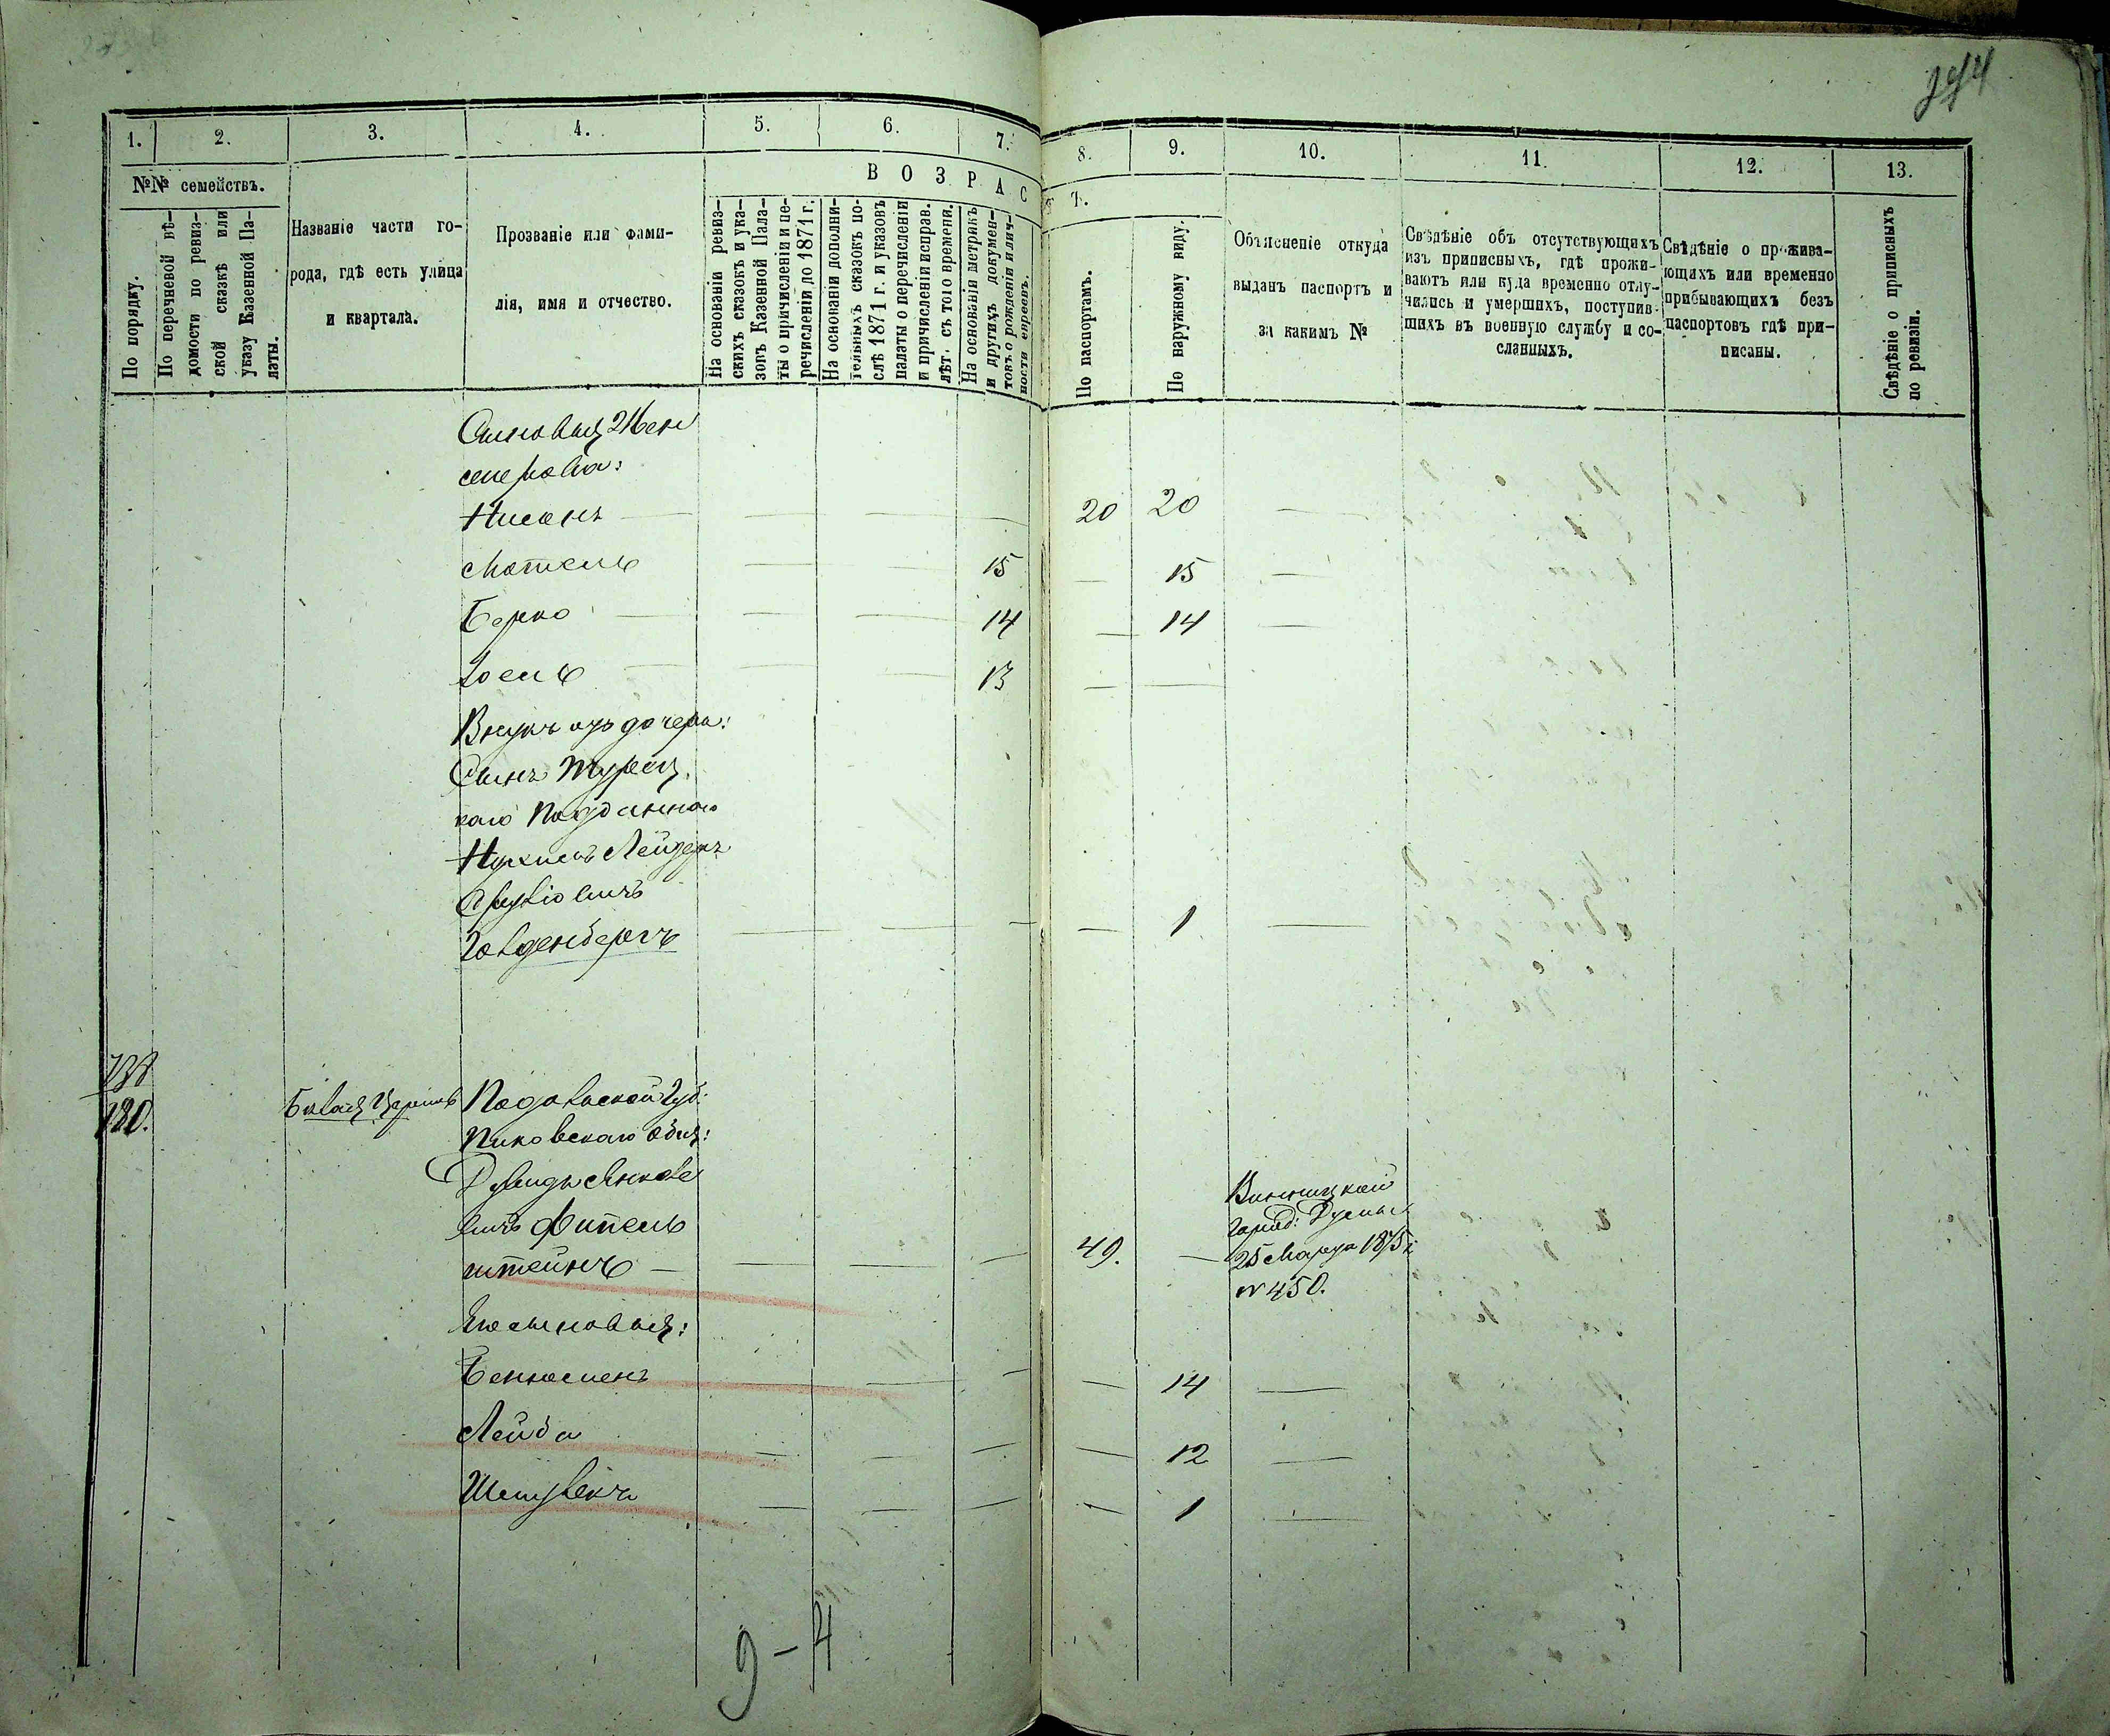 1. 2. 3. 4. 5. 6. 7. 8. 9. 10. 11. 12. 13.
№№ семействъ.
По порядку.
По перечневой вѣ-
домости по ревиз-
ской сказкѣ или
указу Казенной Па-
латы.
Названіе части го-
рода, гдѣ есть улица
и квартала.
Прозваніе или фами-
лія, имя и отчество.
ВОЗРАС
Т.
На основаніи ревиз-
скихъ сказокъ и ука-
зовъ Казенной Пала-
ты о причисленіи и пе-
речисленіи до 1871 г.
На основаніи дополни-
тельныхъ сказокъ по-
слѣ 1871 г. и указовъ
палаты о перечисленіи
и причисленіи исправ.
лѣт. съ того времени.
На основаніи метрикъ
и другихъ докумен-
товъ о рожденіи и лич-
ности евреевъ.
По паспортамъ.
По наружному виду.
Объясненіе откуда
выданъ паспортъ и
за какимъ №
Свѣдѣніе объ отсутствующихъ
изъ приписныхъ, гдѣ прожи-
ваютъ или куда временно отлу-
чились и умершихъ, поступив-
шихъ въ военную службу и со-
сланныхъ.
Свѣдѣніе о прожива-
ющихъ или временно
прибывающихъ безъ
паспортовъ гдѣ при-
писаны.
Свѣдѣніе о приписныхъ
по ревизіи.
Сыновья
Нисонъ — — — — 20 20 —
Мотель — — 15 — 15 —
Берко — — — 14 — 14 —
Іось — — — 13 — —
Внукъ отъ дочери:
Сынъ Турец
каго Подданнаго
Лейзеръ
Срулiовичъ
Гольденбергъ — — — — 1 —
180.
Подольской Губ:
Пиковскаго общ:
Дувидъ Янкеле
вичъ Финкель
штейнъ — — — — 49. — Винницкой
город: Думы
25 Марта 1875 г
№ 450.
Его сыновья:
Беньяменъ — — — — 14 —
Лейба — — — — 12 —
— — — — 1 —
9-4